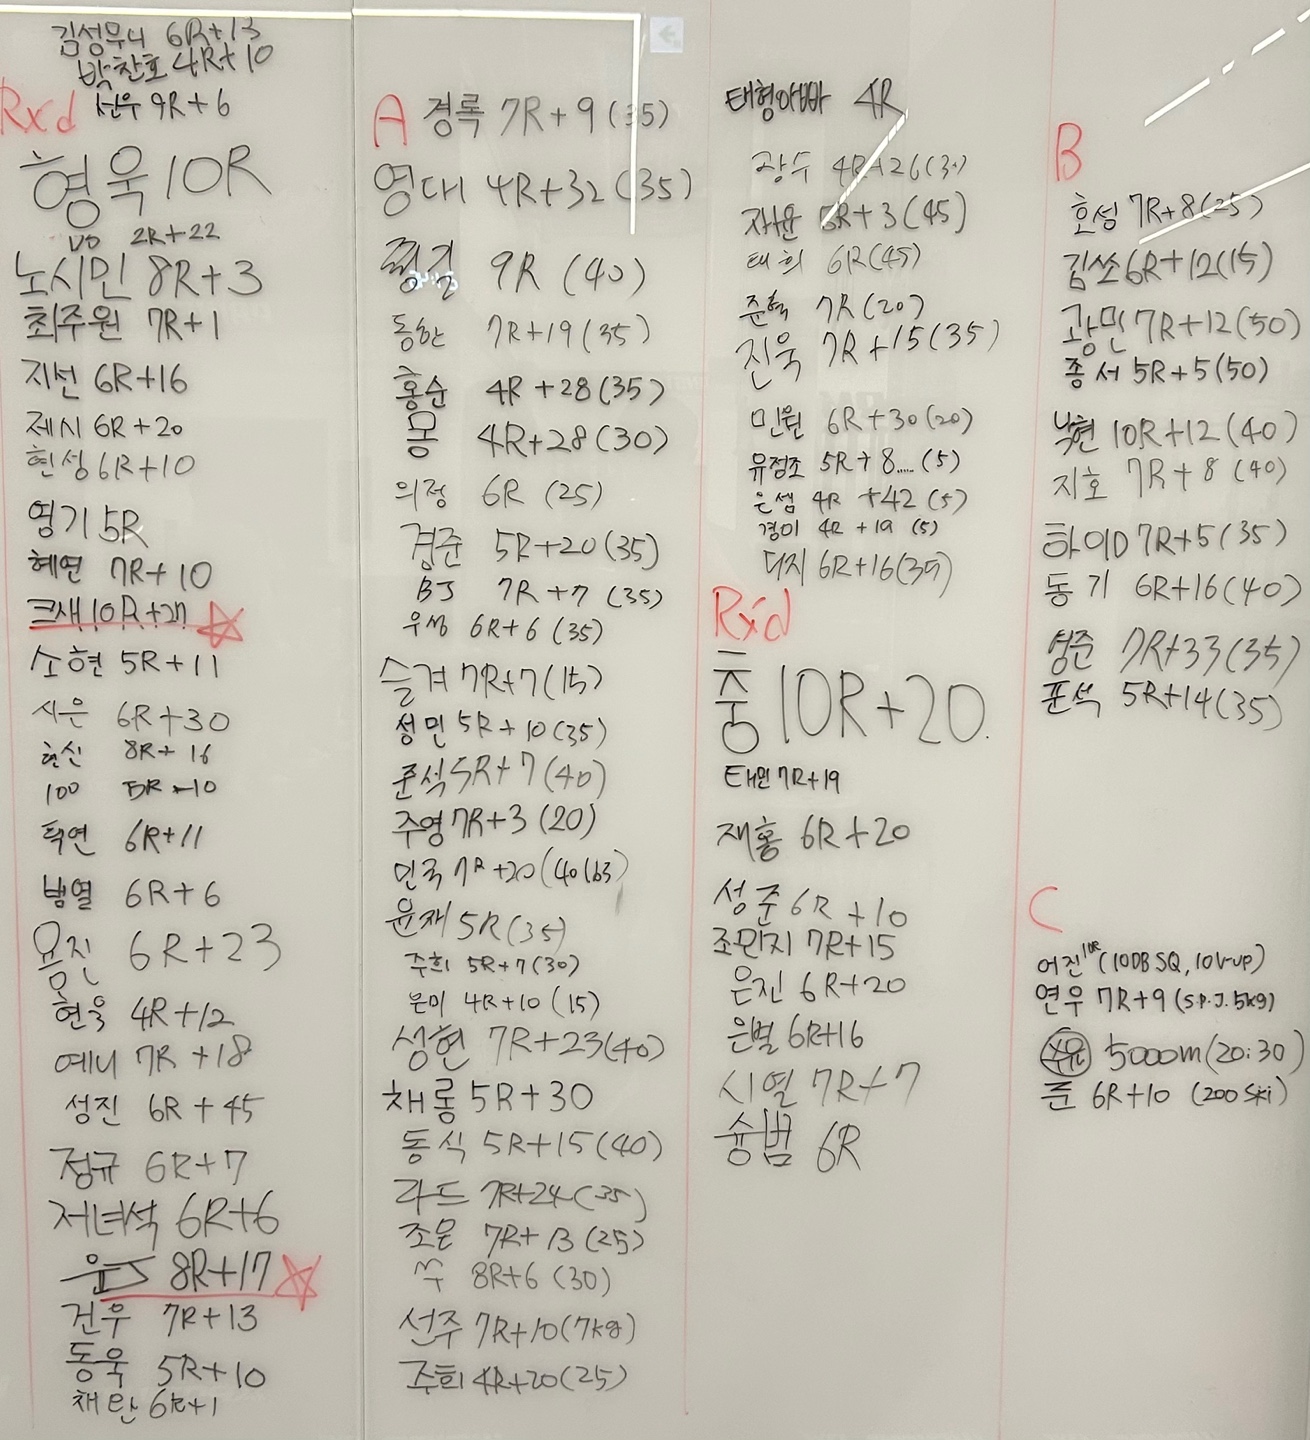 김성무니 6R+13
박찬호 4R+10
Rxd 선우 9R+6
형욱 10R
2R+22
노시민 8R+3
최주원 7R+1
지선 6R+16
제시 6R+20
현성 6R+10
영기 5R
혜연 7R+10
크새 10R+27
소현 5R+11
시은 6R+30
현신 8R+16
100 5R+10
특연 6R+11
범열 6R+6
용진 6R+23
현욱 4R+12
예니 7R+18
성진 6R+45
정규 6R+7
저녀석 6R+6
윤 8R+17
건우 7R+13
동욱 5R+10
채란 6R+1
A 경록 7R+9 (35)
영대 4R+32 (35)
9R (40)
동한 7R+19 (35)
홍순 4R+28 (35)
몽 4R+28 (30)
의정 6R (25)
경준 5R+20 (35)
BJ 7R+7 (35)
우성 6R+6 (35)
슬겨 7R+7 (15)
성민 5R+10 (35)
준석 5R+7 (40)
주영 7R+3 (20)
민국 7R+20 (40 lb3)
윤재 5R (35)
주희 5R+7 (30)
은미 4R+10 (15)
성현 7R+23 (40)
채롱 5R+30
동식 5R+15 (40)
라드 7R+24 (35)
조은 7R+13 (25)
쑤 8R+6 (30)
선주 7R+10 (7kg)
주희 4R+20 (25)
태형아빠 4R
광수 4R+26 (30)
재윤 5R+3 (45)
태희 6R (45)
준혁 7R (20)
진욱 7R+15 (35)
민원 6R+30 (20)
유점조 5R+8..... (5)
은쌤 4R +42 (5)
경미 4R +19 (5)
더지 6R+16 (35)
Rx'd
충 10R+20.
태민 7R+19
재홍 6R+20
성준 6R+10
조민지 7R+15
은진 6R+20
은별 6R+16
시열 7R+7
슝범 6R
B
호성 7R+8 (25)
김쏘 6R+12 (15)
광민 7R+12 (50)
종서 5R+5 (50)
낙현 10R+12 (40)
지호 7R+8 (40)
하이D 7R+5 (35)
동기 6R+16 (40)
성준 7R+33 (35)
푼석 5R+14 (35)
C
어진 10R (10DB SQ, 10 V-up)
연우 7R+9 (S.P.J. 5kg)
5000m (20:30)
준 6R+10 (200 Ski)